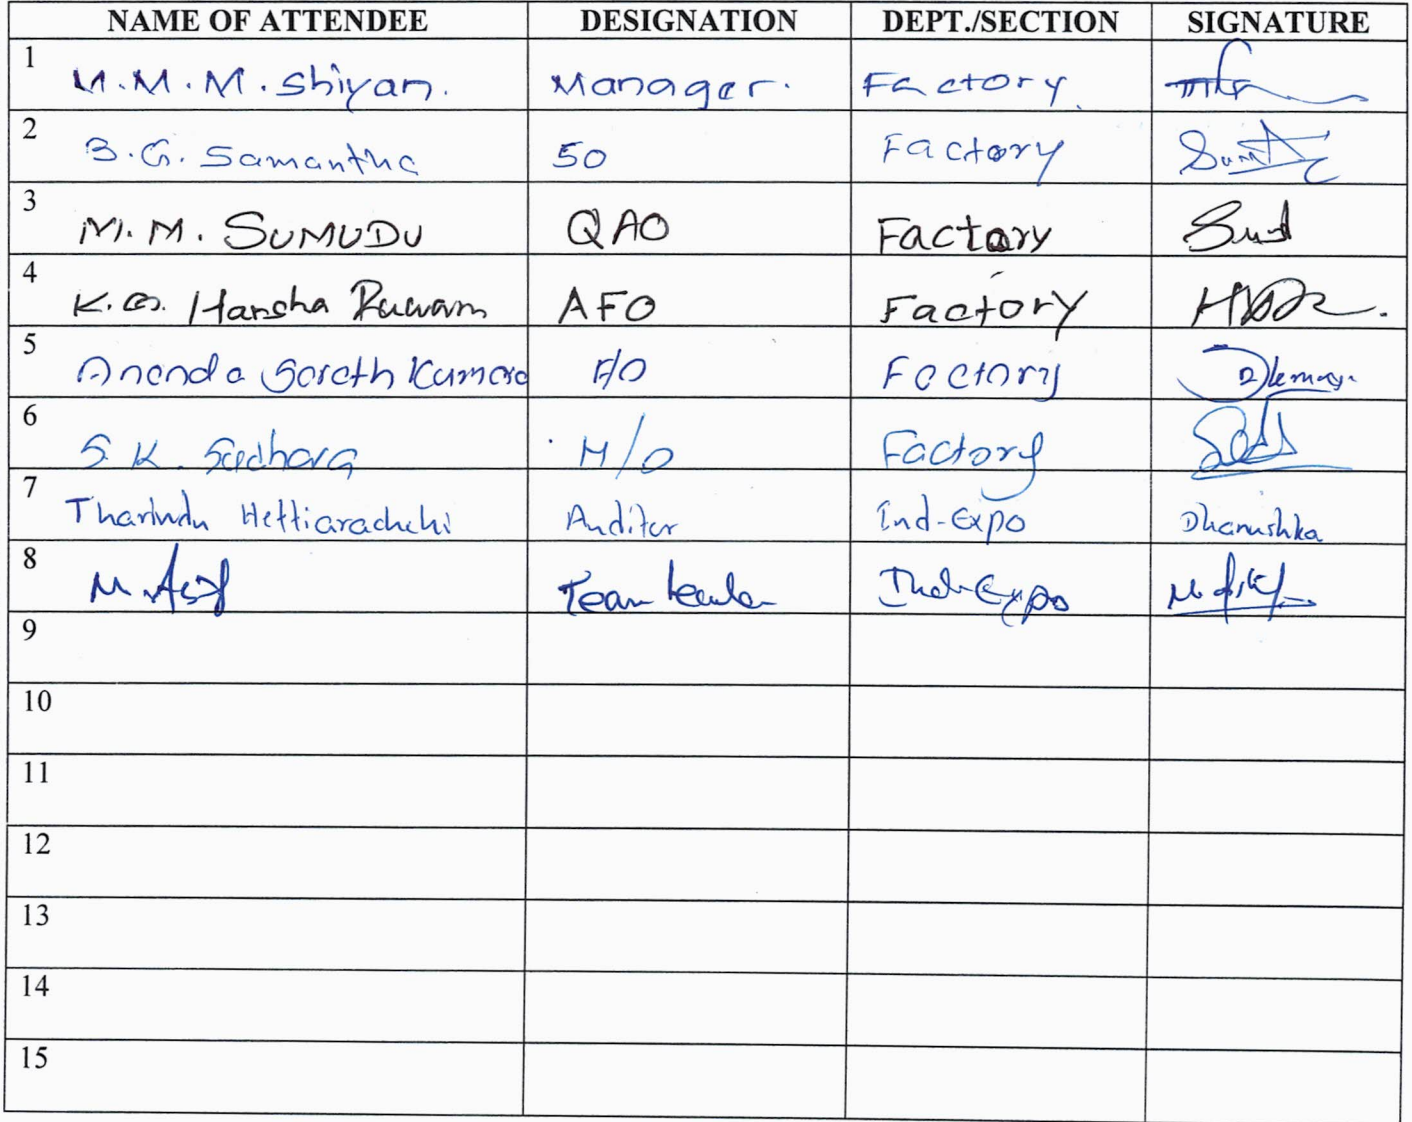 NAME OF ATTENDEE DESIGNATION DEPT./SECTION SIGNATURE
1 M.M.M. Shiyan. Manager. Factory.
2 B.G. Samantha SO Factory
3 M.M. SUMUDU QAO Factory Sumd
4 K.G. Harsha Ruwan AFO Factory
5 Ananda Sarath Kumara F/O Factory
6 S.K. Sadhara M/O Factory
7 Tharindu Hettiarachchi Auditor Ind-Expo Dhanushka
8 M. Asif Team Leader Ind-Expo M. Asif
9
10
11
12
13
14
15